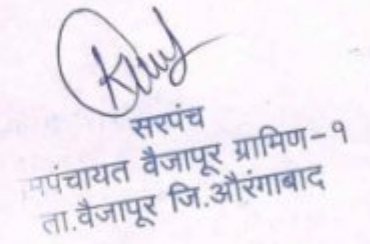 सरपंच
मपंचायत वैजापूर ग्रामिण-१
ता.वैजापूर जि.औरंगाबाद